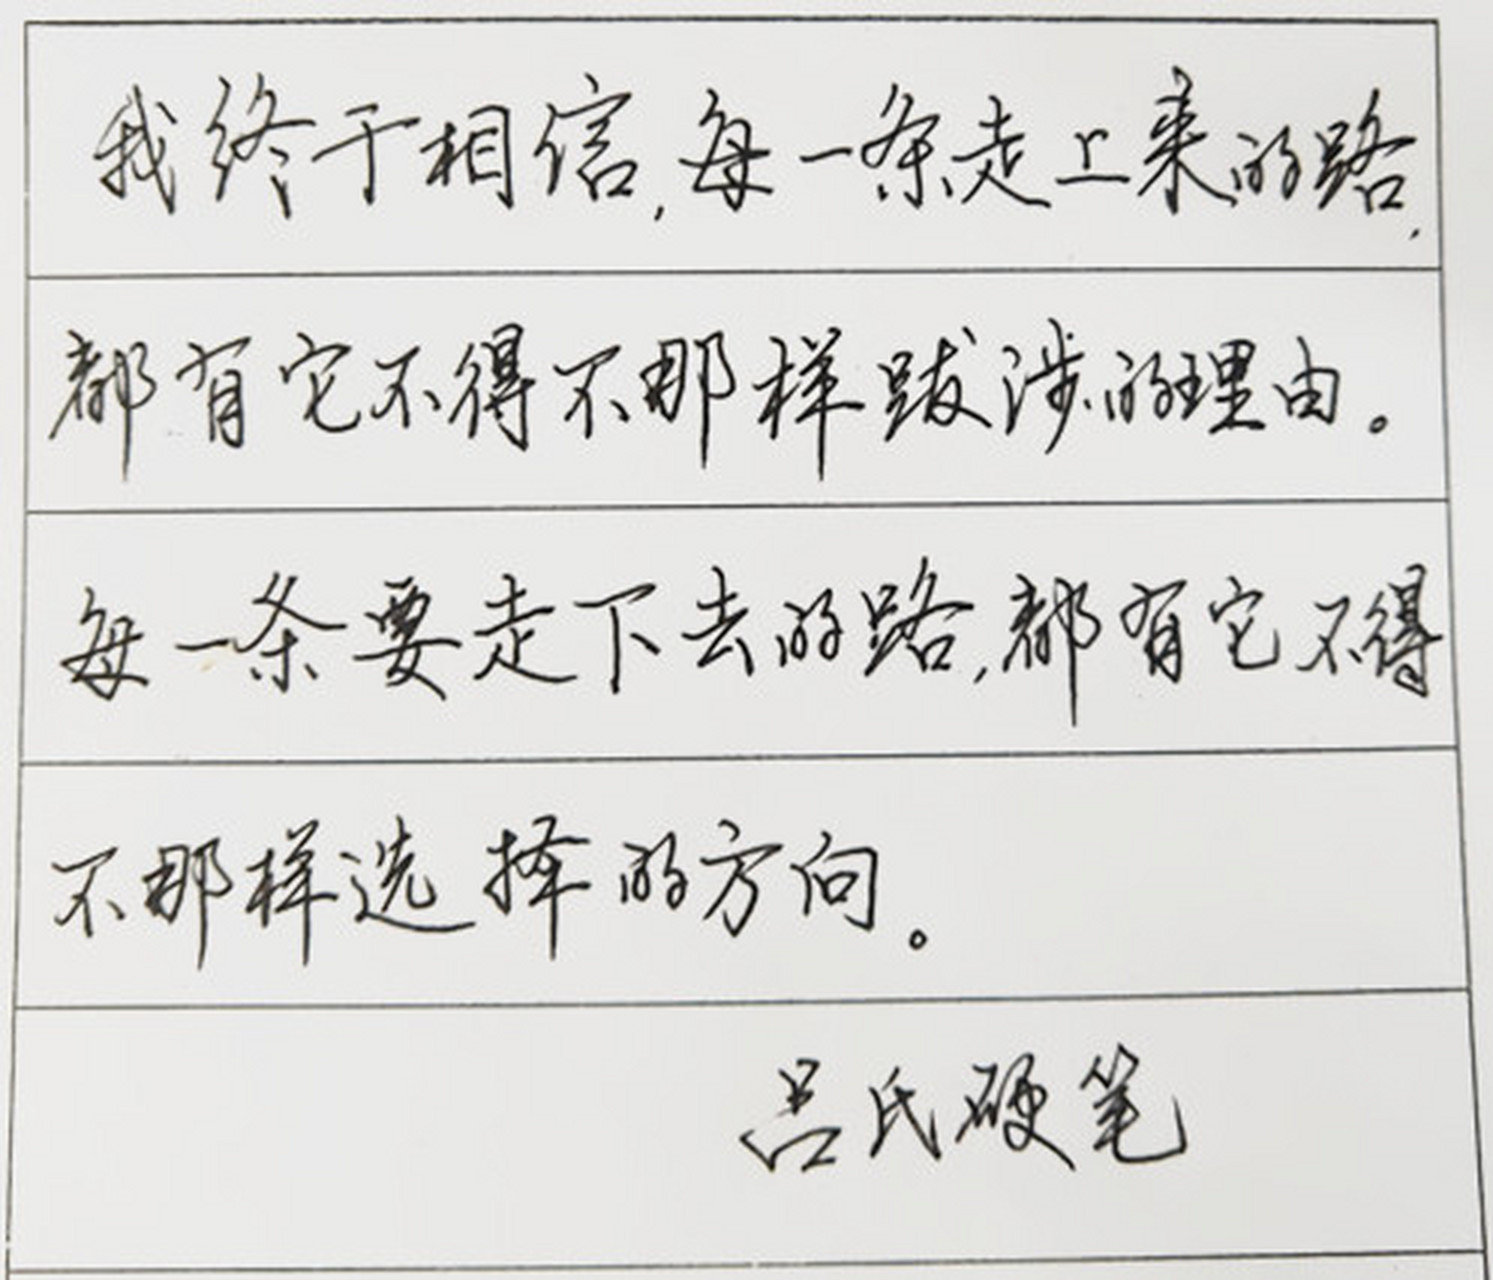 我终于相信,每一条走上来的路,
都有它不得不那样跋涉的理由。
每一条要走下去的路,都有它不得
不那样选择的方向。
吕氏硬笔